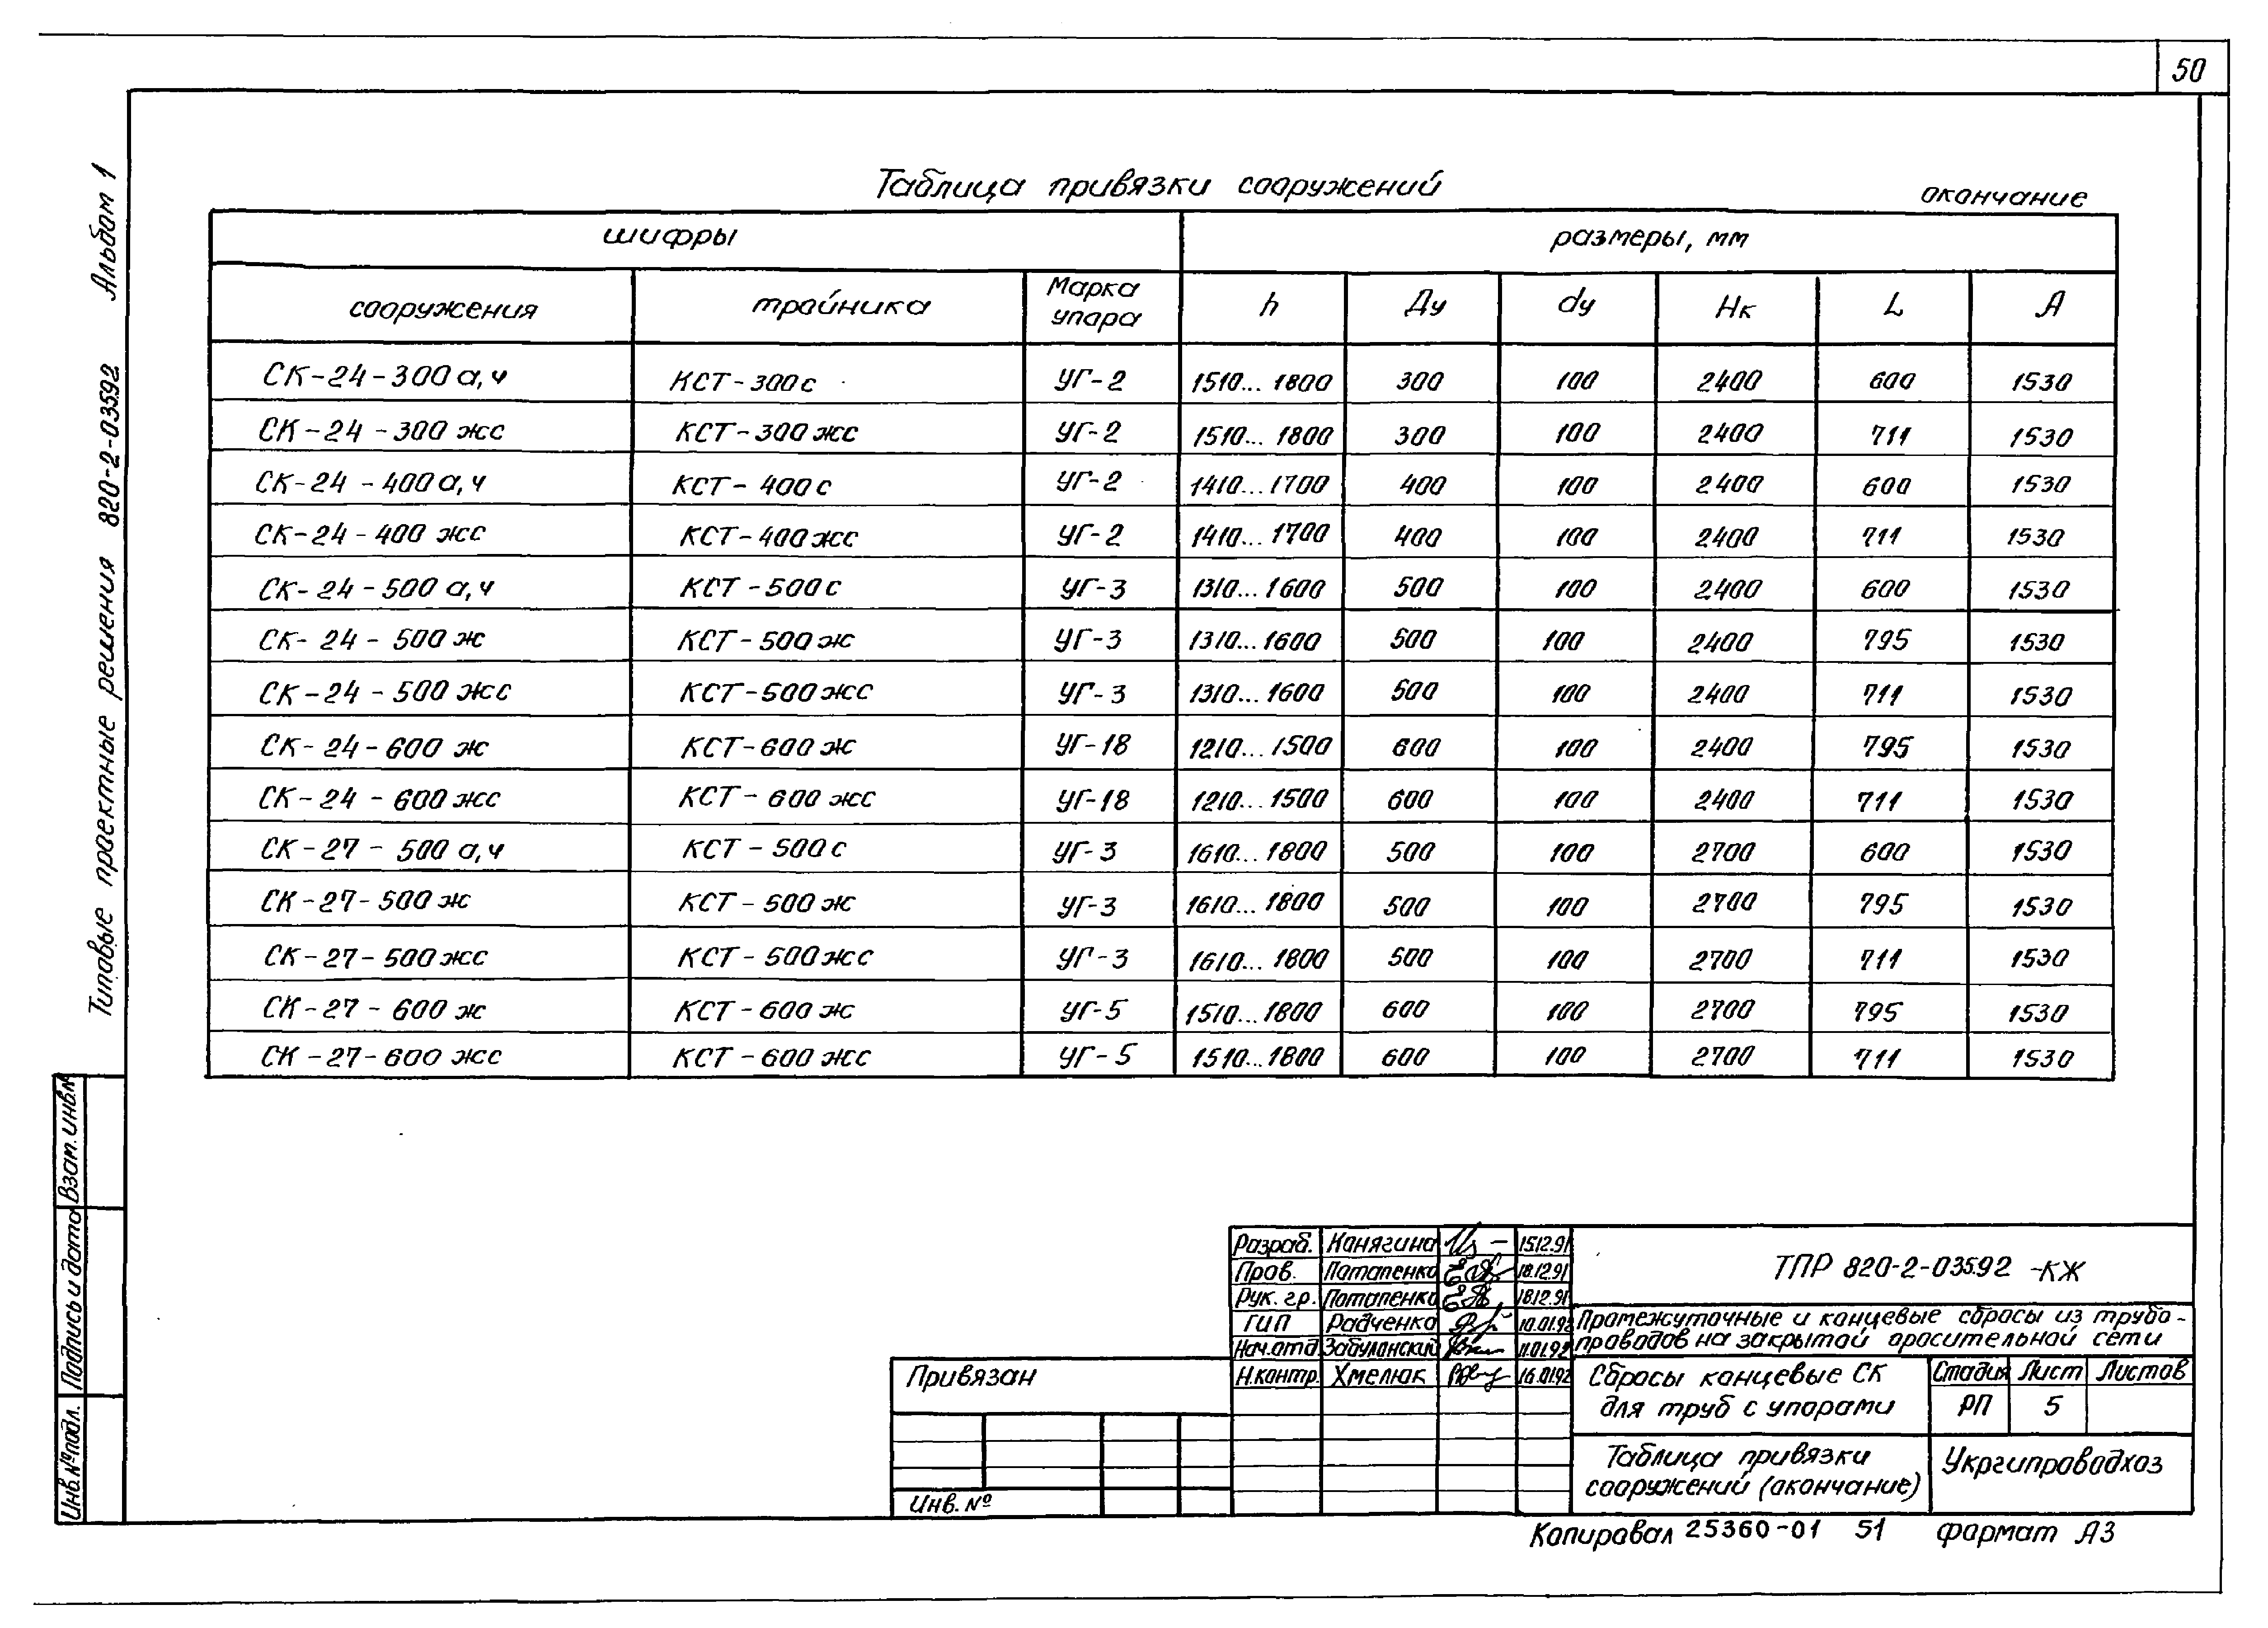 50
Альбом 1
Типовые проектные решения 820-2-035.92
Таблица привязки сооружений
окончание
шифры размеры, мм
сооружения тройника Марка упара h Ду dу Нк L А
СК-24-300 а,ч КСТ-300с УГ-2 1510...1800 300 100 2400 600 1530
СК-24-300 жс КСТ-300 жс УГ-2 1510...1800 300 100 2400 711 1530
СК-24-400 а,ч КСТ-400 с УГ-2 1410...1700 400 100 2400 600 1530
СК-24-400 жс КСТ-400 жс УГ-2 1410...1700 400 100 2400 711 1530
СК-24-500 а,ч КСТ-500 с УГ-3 1310...1600 500 100 2400 600 1530
СК-24-500 ж КСТ-500 ж УГ-3 1310...1600 500 100 2400 795 1530
СК-24-500 жс КСТ-500 жс УГ-3 1310...1600 500 100 2400 711 1530
СК-24-600 ж КСТ-600 ж УГ-18 1210...1500 600 100 2400 795 1530
СК-24-600 жс КСТ-600 жс УГ-18 1210...1500 600 100 2400 711 1530
СК-27-500 а,ч КСТ-500 с УГ-3 1610...1800 500 100 2700 600 1530
СК-27-500 ж КСТ-500 ж УГ-3 1610...1800 500 100 2700 795 1530
СК-27-500 жс КСТ-500 жс УГ-3 1610...1800 500 100 2700 711 1530
СК-27-600 ж КСТ-600 ж УГ-5 1510...1800 600 100 2700 795 1530
СК-27-600 жс КСТ-600 жс УГ-5 1510...1800 600 100 2700 711 1530
Взам. инв.№
Подпись и дата
Инв. № подл.
Разраб. Канягина 15.12.91
Пров. Потапенко 18.12.91
Рук. гр. Потапенко 18.12.91
ГИП Радченко 10.01.92
Нач.отд. Забуланский 11.01.92
Н.контр. Хмелюк 16.01.92
ТПР 820-2-035.92 -КЖ
Промежуточные и концевые сбросы из трубо-
проводов на закрытой оросительной сети
Сбросы концевые СК
для труб с упорами
Стадия Лист Листов
РП 5
Таблица привязки
сооружений (окончание)
Укргипроводхоз
Привязан
Инв. №
Копировал 25360-01 51 формат А3